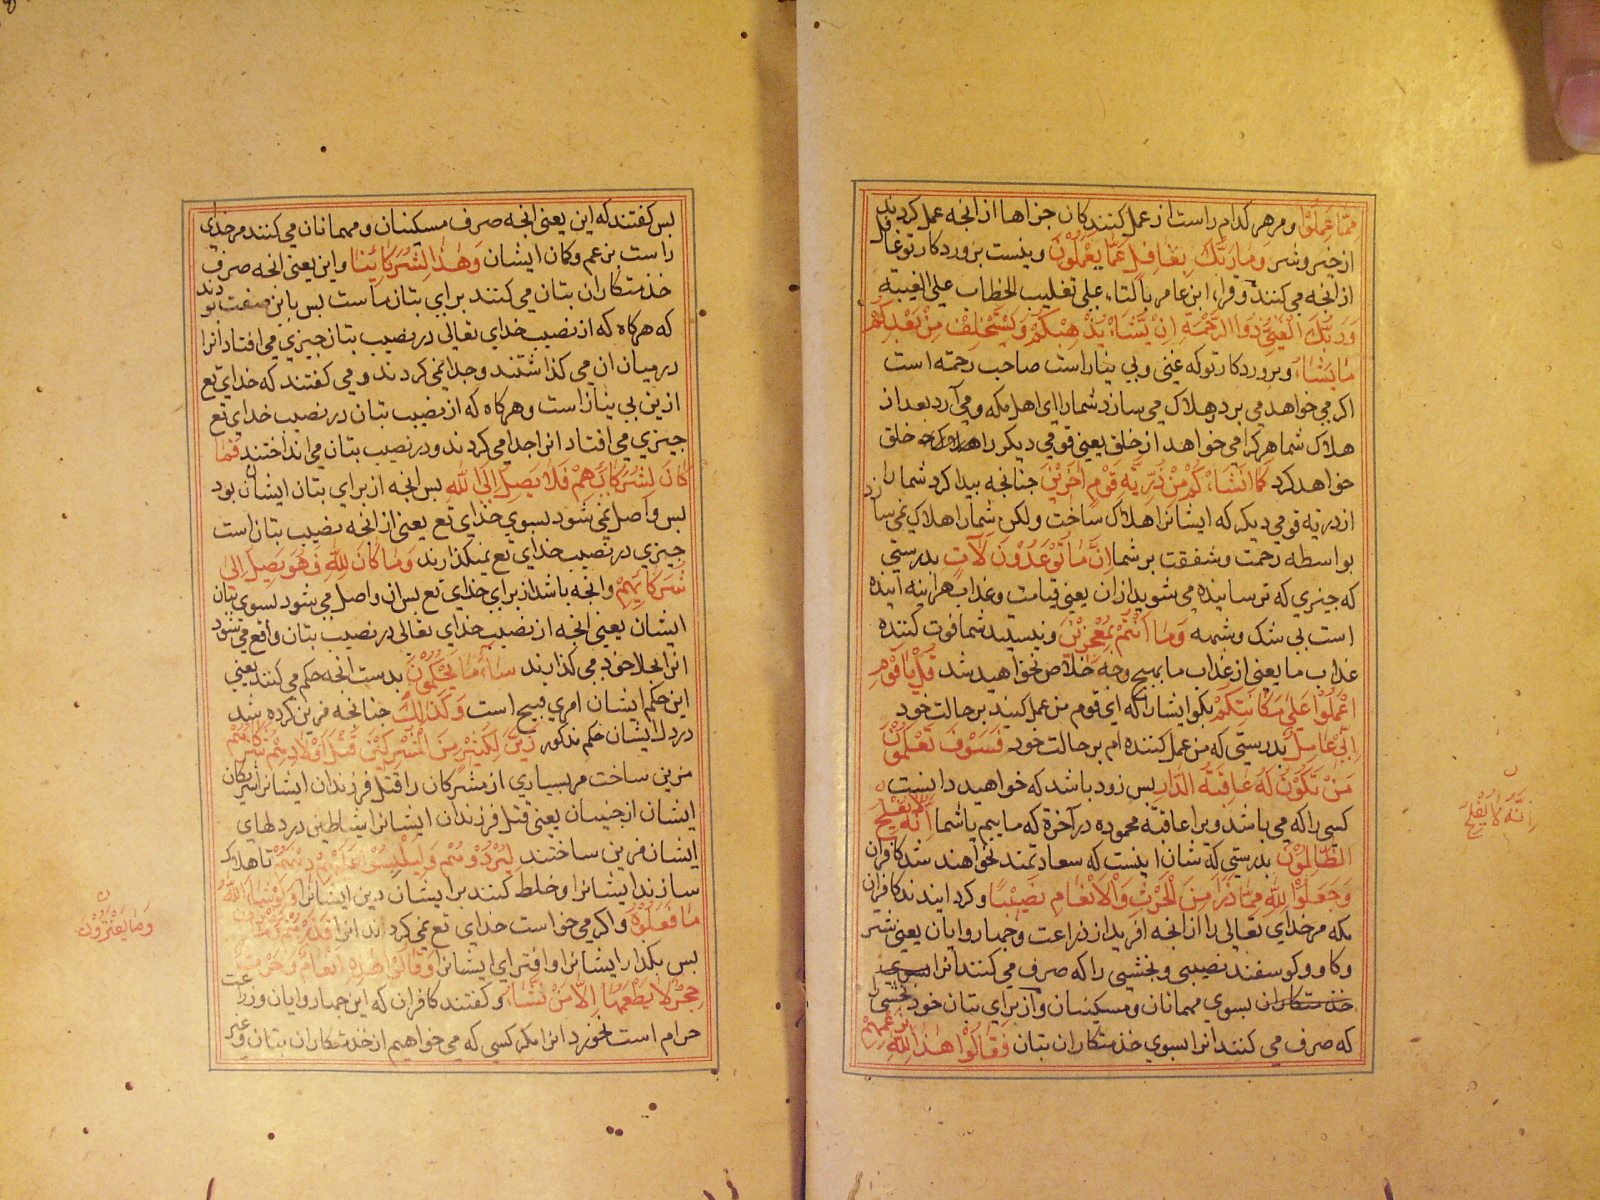 مِمَّا عَمِلُوا ومر هر کدام راست از عمل کنندکان جزاها از انجه عمل کردند
از خیر و شر وَمَا رَبُّكَ بِغَافِلٍ عَمَّا يَعْمَلُوْنَ ونیست بروردکار تو غافل
از انجه می کنند وقراء ابن عامر بالتاء علی تغلیب الخطاب علی الغیبة
وَرَبُّكَ الْغَنِيُّ ذُوا الرَّحْمَةِ اِنْ يَّشَاءْ يُذْهِبْكُمْ وَيَسْتَخْلِفْ مِنْ بَعْدِكُمْ
مَا يَشَاءُ وبروردکار تو که غنی وبی نیاز است صاحب رحمة است
اکر می خواهد می برد وهلاک می سازد شمارا ای اهل مکه ومی آرد بعد از
هلاک شما هر کرا می خواهد از خلق یعنی قومی دیکر را خلق
خواهد کرد كَمَا اَنْشَاَكُمْ مِنْ ذُرِّيَّةِ قَوْمٍ اٰخَرِيْنَ جنانجه بیدا کرد شمارا
از ذریه قومی دیکر که ایشانرا هلاک ساخت ولکن شمارا هلاک نمی سازد
بواسطه رحمت وشفقت بر شما اِنَّ مَا تُوْعَدُوْنَ لَاٰتٍ بدرستی
که جیزی که ترسانیده می شوید ازان یعنی قیامت وعذاب هراینه آینده
است بی شک وشبهه وَمَا اَنْتُمْ بِمُعْجِزِيْنَ ونیستید شما فوت کننده
عذاب ما یعنی از عذاب ما بهیج وجه خلاص نخواهید شد قُلْ يَا قَوْمِ
اعْمَلُوْا عَلٰى مَكَانَتِكُمْ بکو ایشانرا که ای قوم من عمل کنید بر حالت خود
اِنِّيْ عَامِلٌ بدرستی که من عمل کننده ام بر حالت خود فَسَوْفَ تَعْلَمُوْنَ
مَنْ تَكُوْنُ لَهُ عَاقِبَةُ الدَّارِ بس زود باشد که خواهید دانست
کسی را که می باشد ویرا عاقبة محموده در آخرة که ماییم یا شما اِنَّهُ لَا يُفْلِحُ
الظَّالِمُوْنَ بدرستی که شان اینست که سعادتمند نخواهند شد کافران
وَجَعَلُوْا لِلّٰهِ مِمَّا ذَرَاَ مِنَ الْحَرْثِ وَالْاَنْعَامِ نَصِيْبًا وکردانیدند کافران
مکه مر خدای تعالی را از انجه آفرید از زراعت وجهاروایان یعنی شتر
وکاو وکوسفند نصیبی وبخشی را که صرف می کنند انرا بسوی
خدمتکاران بسوی مهمانان ومسکینان واز برای بتان خود بخشی را
که صرف می کنند انرا بسوی خدمتکاران بتان فَقَالُوْا هٰذَا لِلّٰهِ بِزَعْمِهِمْ
اِنَّهُ لَا يُفْلِحُ
بس کفتند که این یعنی انجه صرف مسکینان ومهمانان می کنند مر خدای
راست بزعم وکان ایشان وَهٰذَا لِشُرَكَائِنَا واین یعنی انجه صرف
خدمتکاران بتان می کنند برای بتان ماست بس باین صفت بودند
که هرکاه که از نصیب خدای تعالی در نصیب بتان جیزی می افتاد انرا
درمیان ان می کذاشتند وجدا نمی کردند ومی کفتند که خدای تع
ازین بی نیاز است وهرکاه که از نصیب بتان در نصیب خدای تع
جیزی می افتاد انرا جدا می کردند ودر نصیب بتان می انداختند فَمَا
كَانَ لِشُرَكَائِهِمْ فَلَا يَصِلُ اِلَى اللّٰهِ بس انجه از برای بتان ایشان بود
بس واصل نمی شود بسوی خدای تع یعنی از انجه نصیب بتان است
جیزی در نصیب خدای تع نمیکذارند وَمَا كَانَ لِلّٰهِ فَهُوَ يَصِلُ اِلٰى
شُرَكَائِهِمْ وانجه باشد از برای خدای تع بس ان واصل می شود بسوی بتان
ایشان یعنی انجه از نصیب خدای تعالی در نصیب بتان واقع می شود
انرا بحال خود می کذارند سَاءَ مَا يَحْكُمُوْنَ بدست انجه حکم می کنند یعنی
این حکم ایشان امری قبیح است وَكَذٰلِكَ جنانجه مزین کرده شد
در دل ایشان حکم مذکور زَيَّنَ لِكَثِيْرٍ مِنَ الْمُشْرِكِيْنَ قَتْلَ اَوْلَادِهِمْ شُرَكَاؤُهُمْ
مزین ساخت مر بسیاری از مشرکان را قتل فرزندان ایشانرا شریکان
ایشان از جنیان یعنی قتل فرزندان ایشانرا شیاطین در دلهای
ایشان مزین ساختند لِيُرْدُوْهُمْ وَلِيَلْبِسُوْا عَلَيْهِمْ دِيْنَهُمْ تا هلاک
سازند ایشانرا وخلط کنند بر ایشان دین ایشانرا وَلَوْ شَاءَ اللّٰهُ
مَا فَعَلُوْهُ واکر می خواست خدای تع نمی کردند انرا فَذَرْهُمْ وَمَا يَفْتَرُوْنَ
بس بکذار ایشانرا وافترای ایشانرا وَقَالُوْا هٰذِهِ اَنْعَامٌ وَحَرْثٌ
حِجْرٌ لَا يَطْعَمُهَا اِلَّا مَنْ نَشَاءُ وکفتند کافران که این جهاروایان وزراعت
حرام است نخورد انرا مکر کسی که می خواهیم از خدمتکاران بتان وغیر
وَمَا يَفْتَرُوْنَ